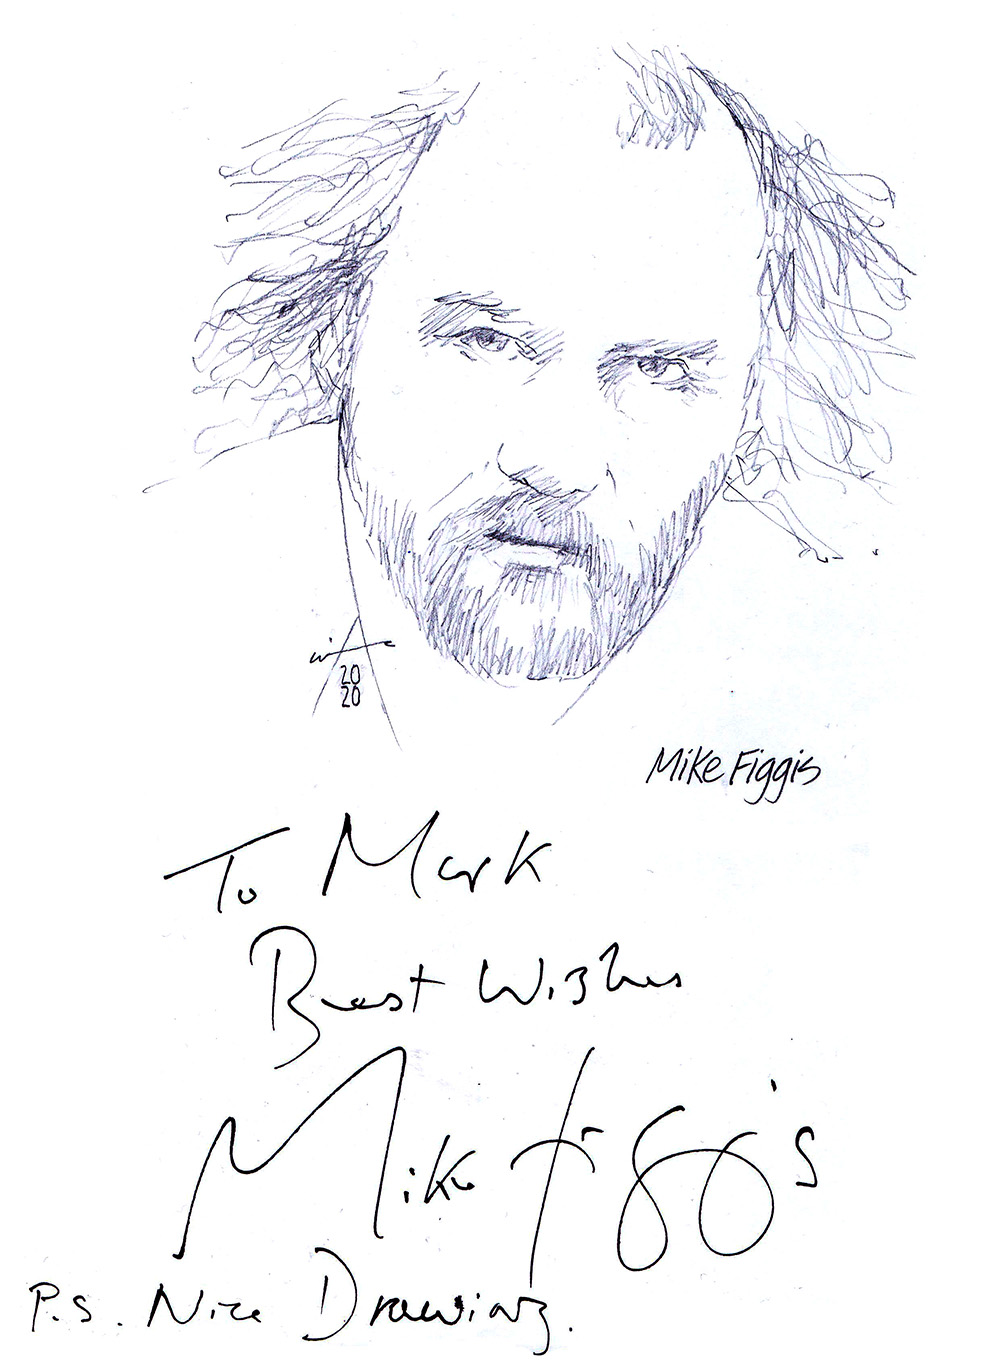 20
20
Mike Figgis
To Mark
Best Wishes
Mike Figgis
P.S. Nice Drawing.